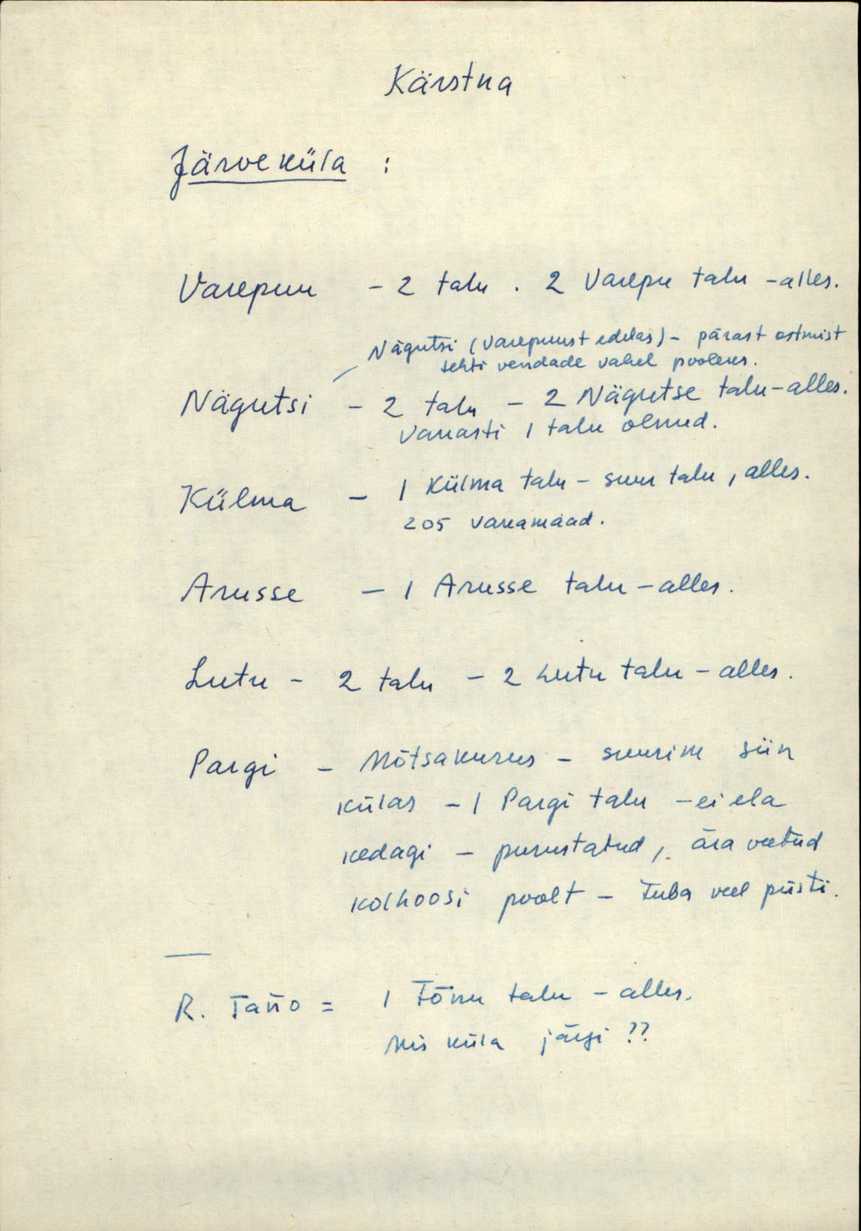 Kärstna
Järveküla :
Varepuu - 2 talu . 2 Varepu talu - alles.
Nägutsi (Varepuust edelas) - pärast ostmist
tehti vendade vahel pooleks.
Nägutsi - 2 talu - 2 Nägutse talu - alles.
Vanasti 1 talu olnud.
Külma - 1 Külma talu - suur talu, alles.
205 vakamaad.
Arusse - 1 Arusse talu - alles.
Lutu - 2 talu - 2 Lutu talu - alles.
Pargi - Mõtsakurus - suurim siin
külas - 1 Pargi talu - ei ela
kedagi - purustatud, ära veetud
kolhoosi poolt - tuba veel püsti.
R. Taño = 1 Tõnu talu - alles.
Mis küla järgi ??